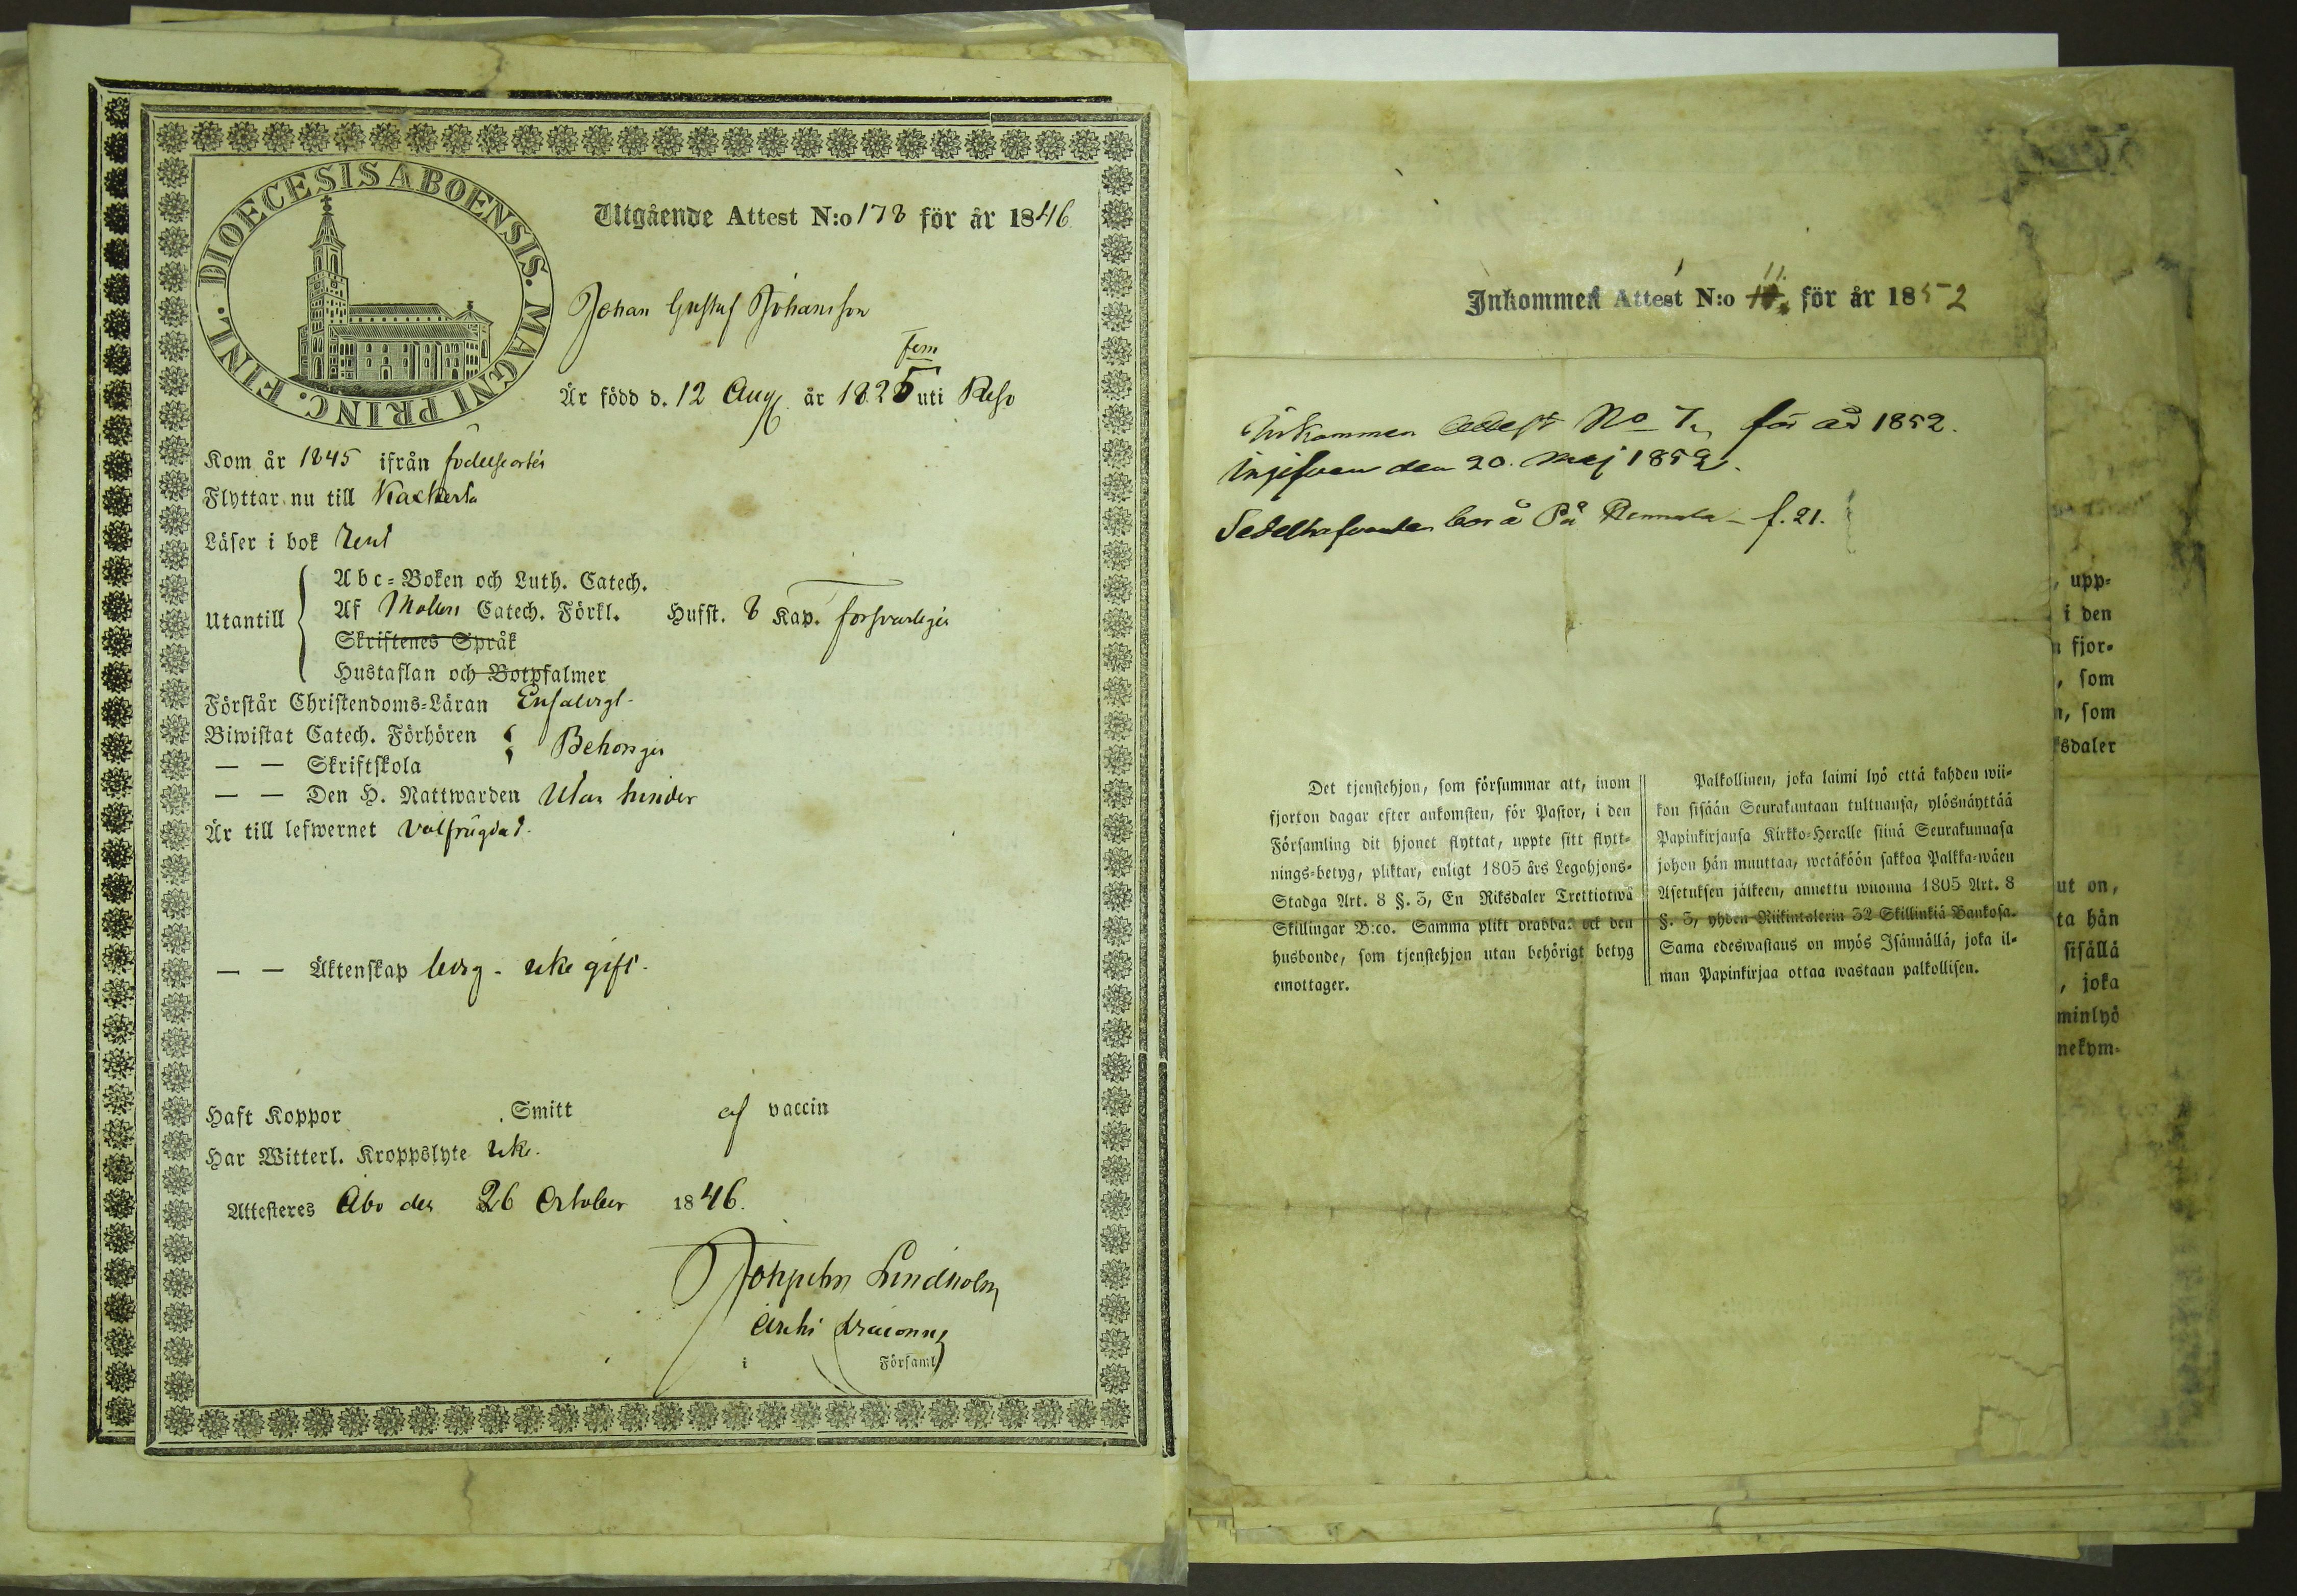 DIOECESIS ABOENSIS. MAGNI PRINC. FINL.
Utgående Attest N:o 178 för år 1846
Johan Gustaf Johansson
fem
Är född d. 12 Aug. år 1825 uti Reso
Kom år 1845 ifrån födelseorten
Flyttar nu till
Läser i bok rent
Abc-Boken och Luth. Catech.
Utantill Af Catech. Förkl. Hufst. 8 Kap. försvarligen
Skriftenes Språk
Hustaflan och Botpsalmer
Förstår Christendoms-Läran Enfaldigt
Biwistat Catech. Förhören
Behörigen
— — Skriftskola
— — Den H. Nattwarden Utan hinder
Är till lefwernet välfrägdad.
— — Äktenskap ledig - icke gift.
Haft Koppor Smitt af vaccin
Har Witterl. Kroppslyte icke.
Attesteres Åbo den 26 October 1846.
Lindholm
Archi Diaconus
i Församl.
Inkommen Attest N:o 11. för år 1852
Inkommen Attest No 7. för år 1852.
Ingifven den 20. Maj 1852.
Sedelhafvanden bor å På - f. 21.
Det tjenstehjon, som försummar att, inom
fjorton dagar efter ankomsten, för Pastor, i den
Församling dit hjonet flyttat, uppte sitt flytt-
nings-betyg, pliktar, enligt 1805 års Legohjons-
Stadga Art. 8 §. 3, En Riksdaler Trettiotwå
Skillingar B:co. Samma plikt drabbar ock den
husbonde, som tjenstehjon utan behörigt betyg
emottager.
Palkollinen, joka laimi lyö että kahden wii-
kon sisään Seurakuntaan tultuansa, ylösnäyttää
Papinkirjansa Kirkko-Heralle siinä Seurakunnasa
johon hän muuttaa, wetäköön sakkoa Palkka-wäen
Asetuksen jälkeen, annettu wuonna 1805 Art. 8
§. 3, yhden Riikintalerin 32 Skillinkiä Bankosa.
Sama edeswastaus on myös Isännällä, joka il-
man Papinkirjaa ottaa wastaan palkollisen.
, upp-
i den
n fjor-
, som
n, som
ksdaler
ut on,
ta hän
sisällä
, joka
minlyö
nekym-